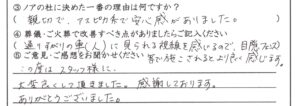 ③ノアの杜に決めた一番の理由は何ですか?
(親切で、アスピカ系で安心感がありました。)
④葬儀・ご火葬で改善すべき点がありましたらご記入ください
(通りすがりの車(人)に見られる視線を感じるので、目隠し
⑤ご意見・ご感想をお聞かせください
等が施こされると より良く感じます。)
この度はスタッフ様に
大変良くして頂きました。感謝しております。
ありがとうございました。